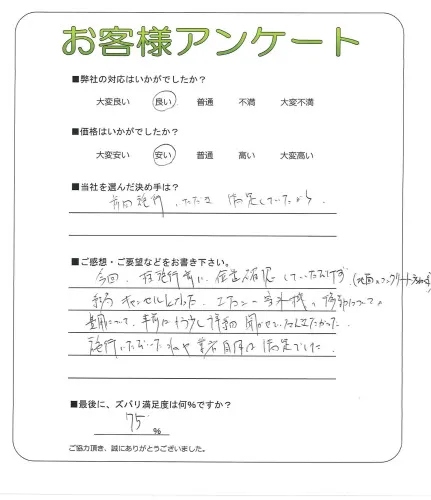 お客様アンケート
■弊社の対応はいかがでしたか?
大変良い 良い 普通 不満 大変不満
■価格はいかがでしたか?
大変安い 安い 普通 高い 大変高い
■当社を選んだ決め手は?
前回施行いただき 満足していたから.
■ご感想・ご要望などをお書き下さい。
今回、 施行前に 確認していただけず
キャンセルになった. エアコン 室外機の 移動について
費用について、事前にもう少し詳細 聞かせていただきたかった
施行いただいた 業者自体は満足でした.
■最後に、ズバリ満足度は何%ですか?
75 %
ご協力頂き、誠にありがとうございました。